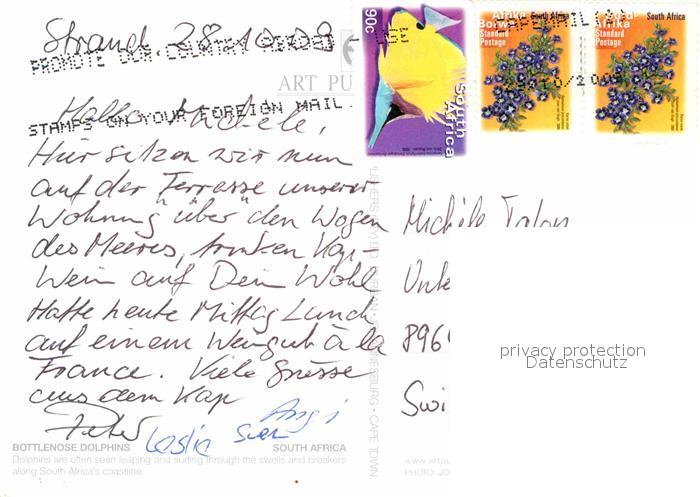 Strand 28.10.08
PROMOTE OUR COUNTRY
STAMPS ON YOUR FOREIGN MAIL.
ART PU
90c
South Africa
Standard Postage
South Africa
Afrika
Standard Postage
South Africa
Hallo Michèle,
Hier sitzen wir nun
auf der Terrasse unserer
Wohnung "über" den Wogen
des Meeres, trinken Kap-
Wein auf Dein Wohl
Hatte heute Mittag Lunch
auf einem Weingut à la
France. Viele Grüsse
aus dem Kap
Peter
Leslie
Michèle
Unte
896
Swi
privacy protection
Datenschutz
BOTTLENOSE DOLPHINS
SOUTH AFRICA
Dolphins are often seen leaping and surfing through the swells and breakers
along South Africa's coastline.
www.artpu
PHOTO: JO
CAPE TOWN